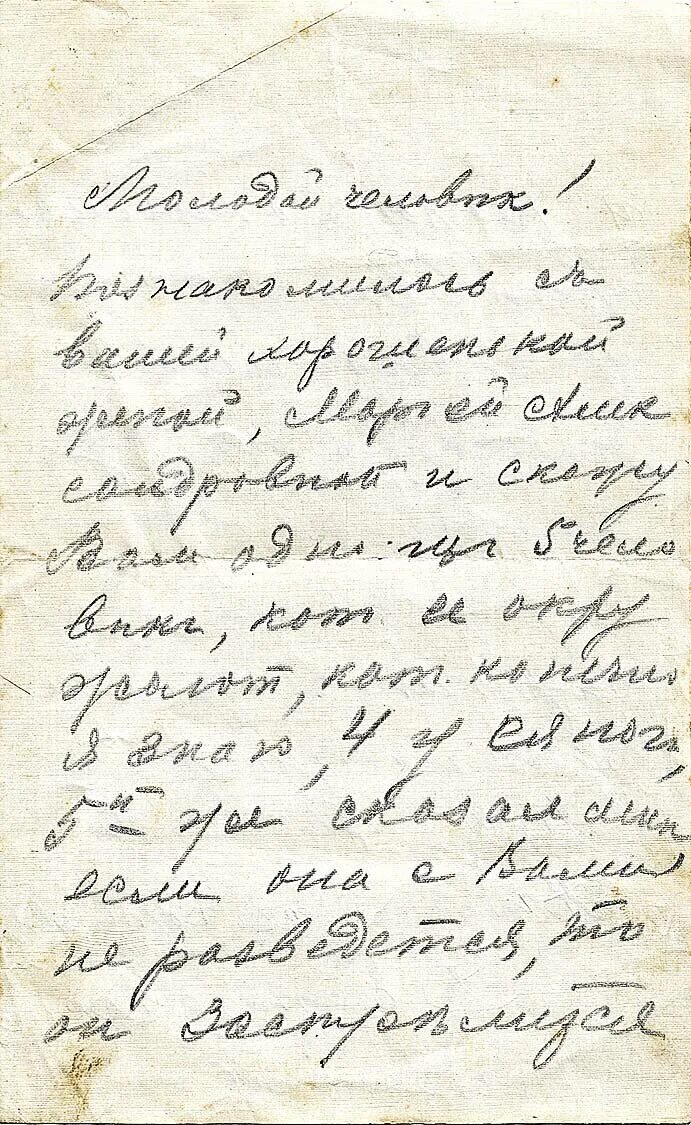 Молодой человѣк!
Познакомилась съ
вашей хорошенькой
женой, Марьей Алек
сандровной и скажу
Вам одно: изъ 5 чело
вѣкъ, кот ее окру
жают, кот. конечно
я знаю, 4 у ея ногъ,
5й же сказал мнѣ
если она с Вами
не разведется, то
он застрѣлится